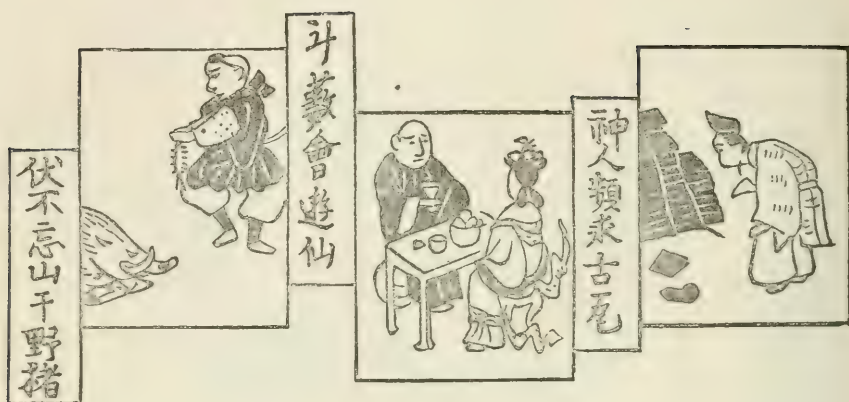 神人類求古瓦
斗藪會遊仙
伏不忘山于野猪